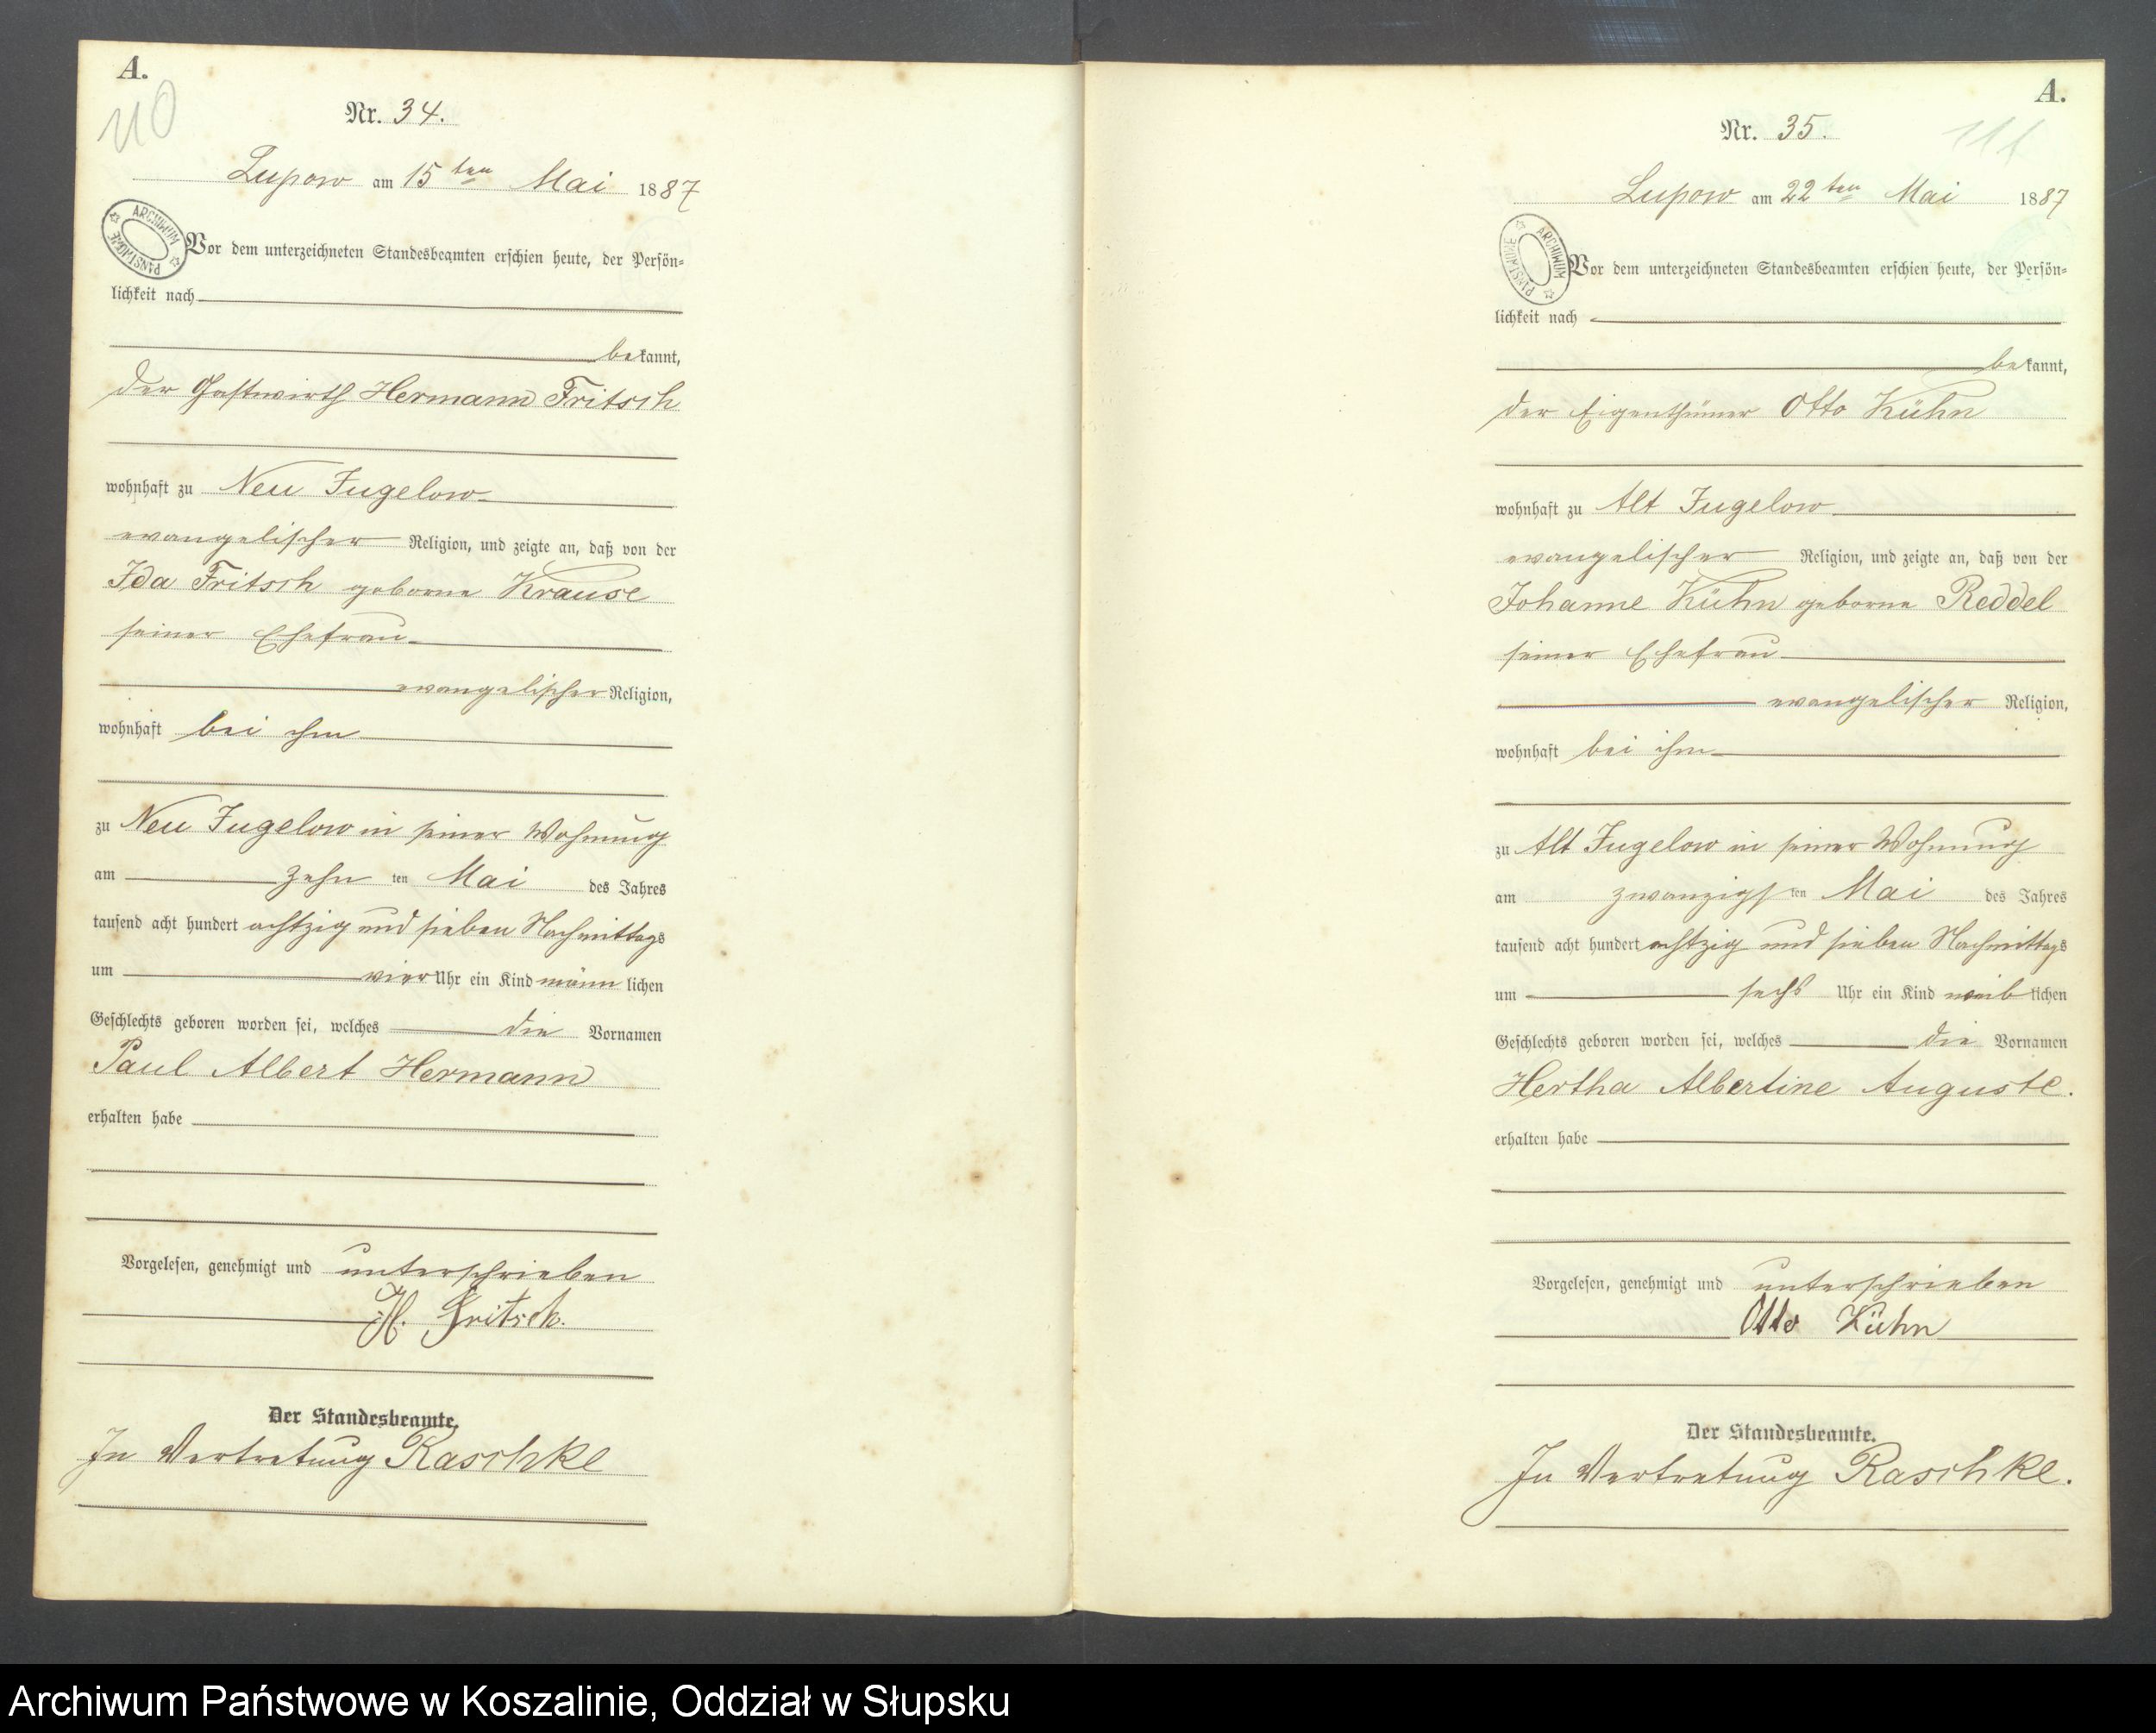 A.
110
Nr. 34.
Lupow am 15ten Mai 1887
ARCHIWUM PAŃSTWOWE
Vor dem unterzeichneten Standesbeamten erschien heute, der Persön-
lichkeit nach
bekannt,
der Gastwirth Hermann Fritsch
wohnhaft zu Neu Jugelow
evangelischer Religion, und zeigte an, daß von der
Ida Fritsch geborne Krause
seiner Ehefrau
evangelischer Religion,
wohnhaft bei ihm
zu Neu Jugelow in seiner Wohnung
am zehn ten Mai des Jahres
tausend acht hundert achtzig und sieben Nachmittags
um vier Uhr ein Kind männlichen
Geschlechts geboren worden sei, welches die Vornamen
Paul Albert Hermann
erhalten habe
Vorgelesen, genehmigt und unterschrieben
H. Fritsch.
Der Standesbeamte.
In Vertretung Raschke
A.
111
Nr. 35.
Lupow am 22ten Mai 1887
ARCHIWUM PAŃSTWOWE
Vor dem unterzeichneten Standesbeamten erschien heute, der Persön-
lichkeit nach
bekannt,
der Eigenthümer Otto Kühn
wohnhaft zu Alt Jugelow
evangelischer Religion, und zeigte an, daß von der
Johanne Kühn geborne Reddel
seiner Ehefrau
evangelischer Religion,
wohnhaft bei ihm
zu Alt Jugelow in seiner Wohnung
am zwanzigsten Mai des Jahres
tausend acht hundert achtzig und sieben Nachmittags
um sechs Uhr ein Kind weiblichen
Geschlechts geboren worden sei, welches die Vornamen
Hertha Albertine Auguste.
erhalten habe
Vorgelesen, genehmigt und unterschrieben
Otto Kühn
Der Standesbeamte.
In Vertretung Raschke.
Archiwum Państwowe w Koszalinie, Oddział w Słupsku